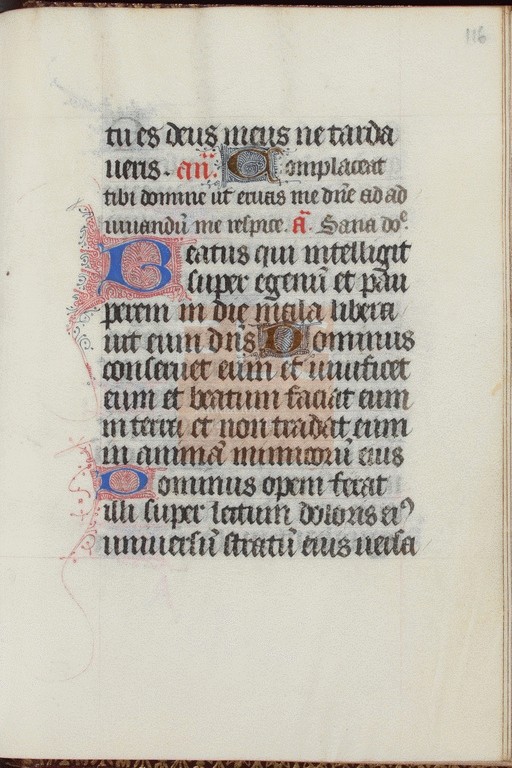 116
tu es deus meus ne tarda
ueris. an̄. Complaceat
tibi domine ut eruas me dn̄e ad ad
iuuandū me respice. a̅. Sana do᷎.
Beatus qui intelligit
super egenū et pau
perem in die mala libera
uit eum dn̄s Dominus
conseruet eum et uiuificet
eum et beatum faciat eum
in terra et non tradat eum
in animā inimicorū eius
Dominus opem ferat
illi super lectum doloris eiꝰ
uniuersū stratū eius uersa